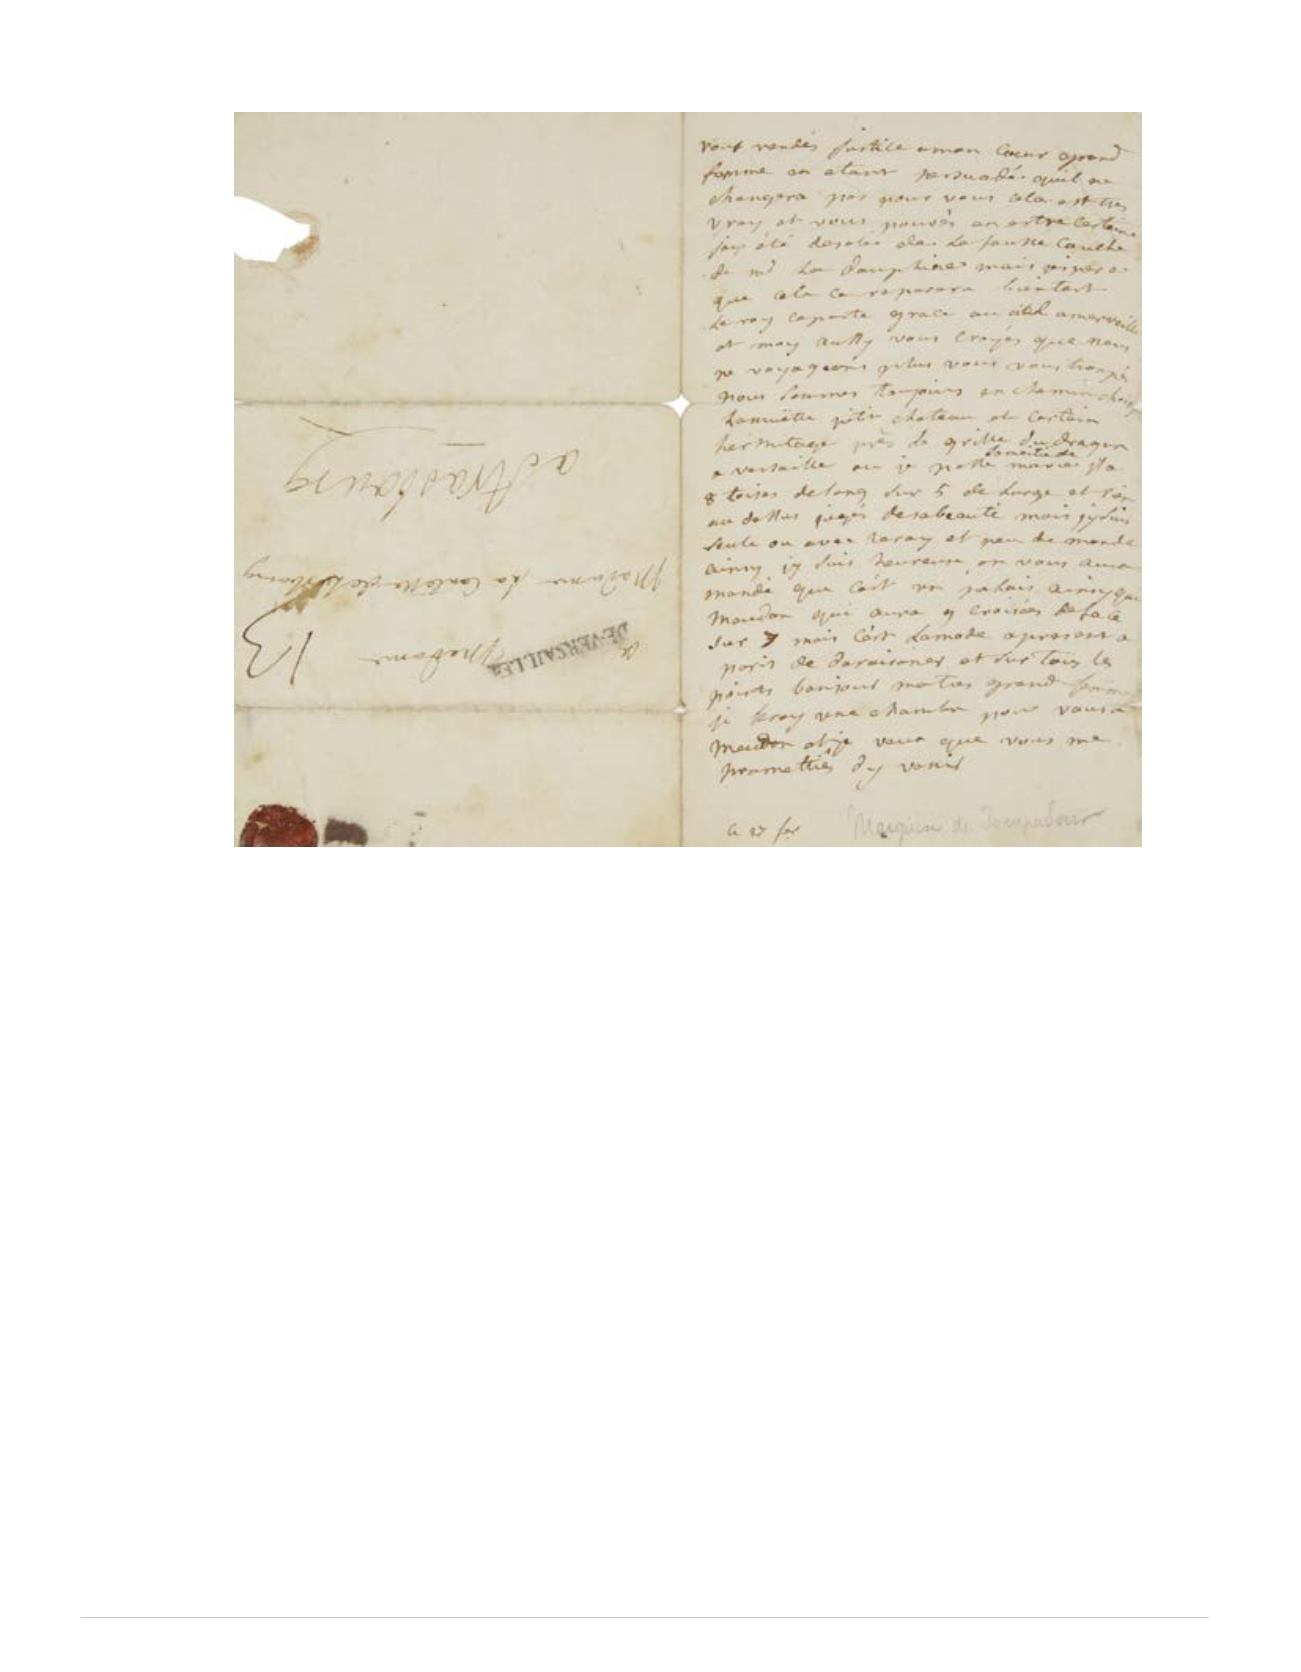 vous rendés justice a mon coeur grand
femme en etant persuadée quil ne
changera pas pour vous cela est tres
vray et vous pouvés en estre certaine
jay été desolée de la fausse couche
de md la dauphine mais jespere
que cela ce reparera bientost
le roy ce porte grace au ciel a merveille
et moy aussy vous croyés que nous
ne voyageons plus vous vous trompés
nous sommes toujours en chemin choisy
la muette petit chateau et certain
hermitage près la grille du dragon
a versaille ou je passe la moitié de ma vie il a
8 toises de long sur 5 de large et rien
au dessus jugés de sa beauté mais jy suis
seule ou avec le roy et peu de monde
ainsy jy suis heureuse on vous aura
mandé que cest un palais ainsy que
Meudon qui aura 9 croisées de face
sur 7 mais cest la mode apresent a
paris de deraisoner et sur tous les
points bonjour ma tres grand femme
je feray une chambre pour vous a
Meudon et je veux que vous me
promettiés dy venir
ce 27 fer
Marquise de Pompadour
a Madame
DE VERSAILLES
13
Madame La Comtesse de
a Strasbourg